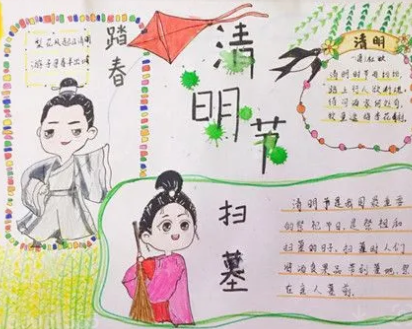 梨花风起正清明
游子寻春半出城
踏春
清明节
清明
杜牧
清明时节雨纷纷
路上行人欲断魂
借问酒家何处有
牧童遥指杏花村
扫墓
清明节是我国最重要
的祭祀节日,是祭祖和
扫墓的日子。扫墓时人们
将酒食果品带到墓地,供
在亲人墓前。